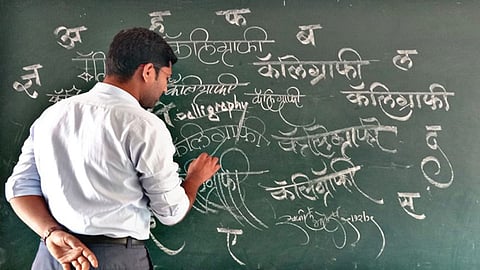 अ ह फ ब ल
कॅलिग्राफी
कॅलिग्राफी
ज्ञ
कॅलिग्राफी
calligraphy कॅलिग्राफी कॅलिग्राफी
कॅलिग्राफी कॅलिग्राफी दु
कॅलिग्राफी स
ए